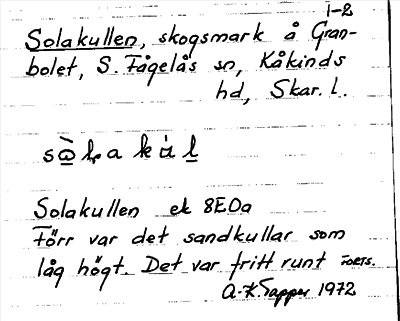 1-2
Solakullen, skogsmark å Gran-
bolet, S. Fågelås sn, Kåkinds
hd, Skar. l.
Solakullen ek 8E0a
Förr var det sandkullar som
låg högt. Det var fritt runt FORTS.
A-K. Tapper 1972